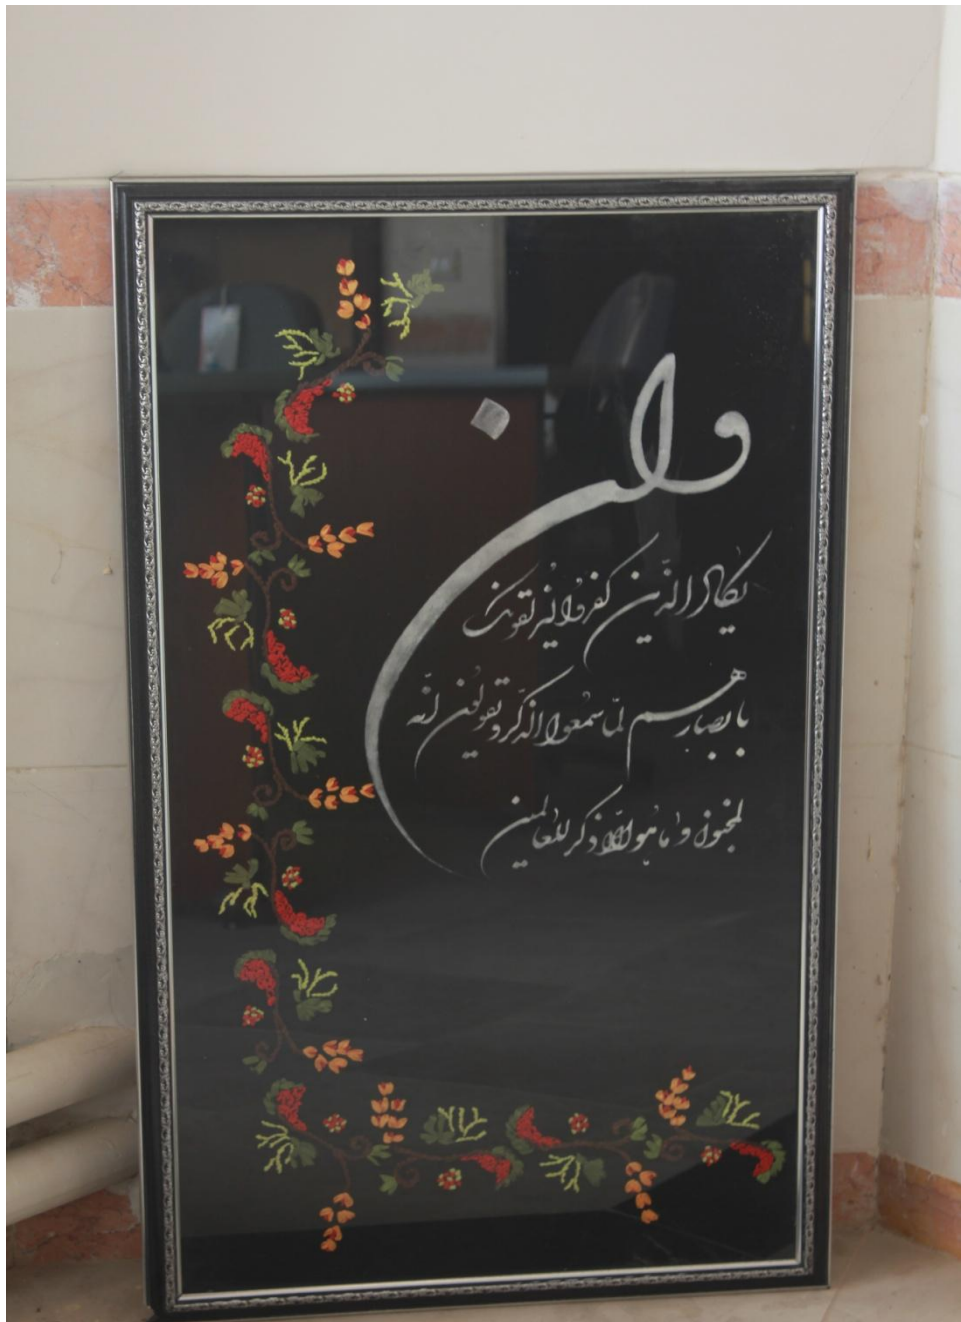 وان
یکاد الذین کفروا لیزلقونک
بابصارهم لمّا سمعوا الذکر و یقولون انّه
لمجنون و ما هو الّا ذکر للعالمین